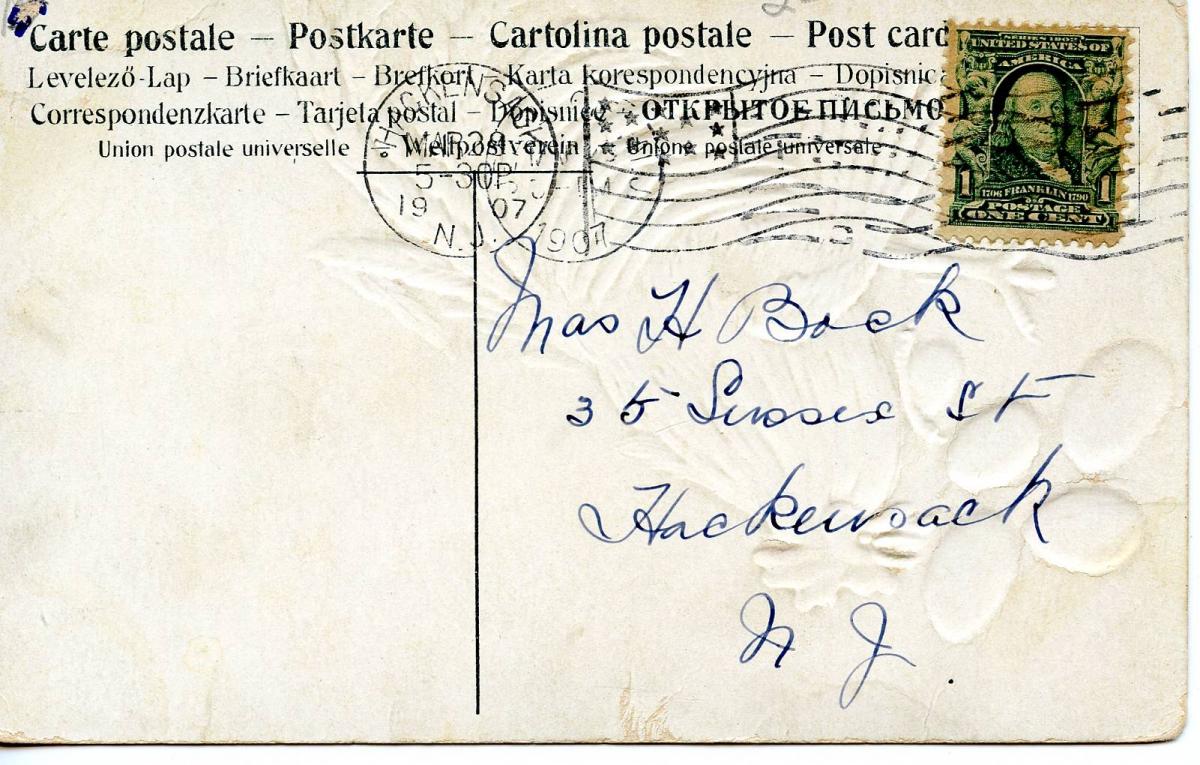 Carte postale – Postkarte – Cartolina postale – Post card
Levelező-Lap – Briefkaart – Brefkort – Karta korespondencyjna – Dopisnica
Correspondenzkarte – Tarjeta postal – Dopisnice – ОТКРЫТОЕ ПИСЬМО
Union postale universelle – Weltpostverein – Unione postale universale
HACKENSACK
MAR 28
5-30P
19 07
N.J.
1907
SERIES 1902
UNITED STATES OF
AMERICA
1 1
1706 FRANKLIN 1790
POSTAGE
ONE CENT
Mas H Bock
35 Sussex St
Hackensack
N J.